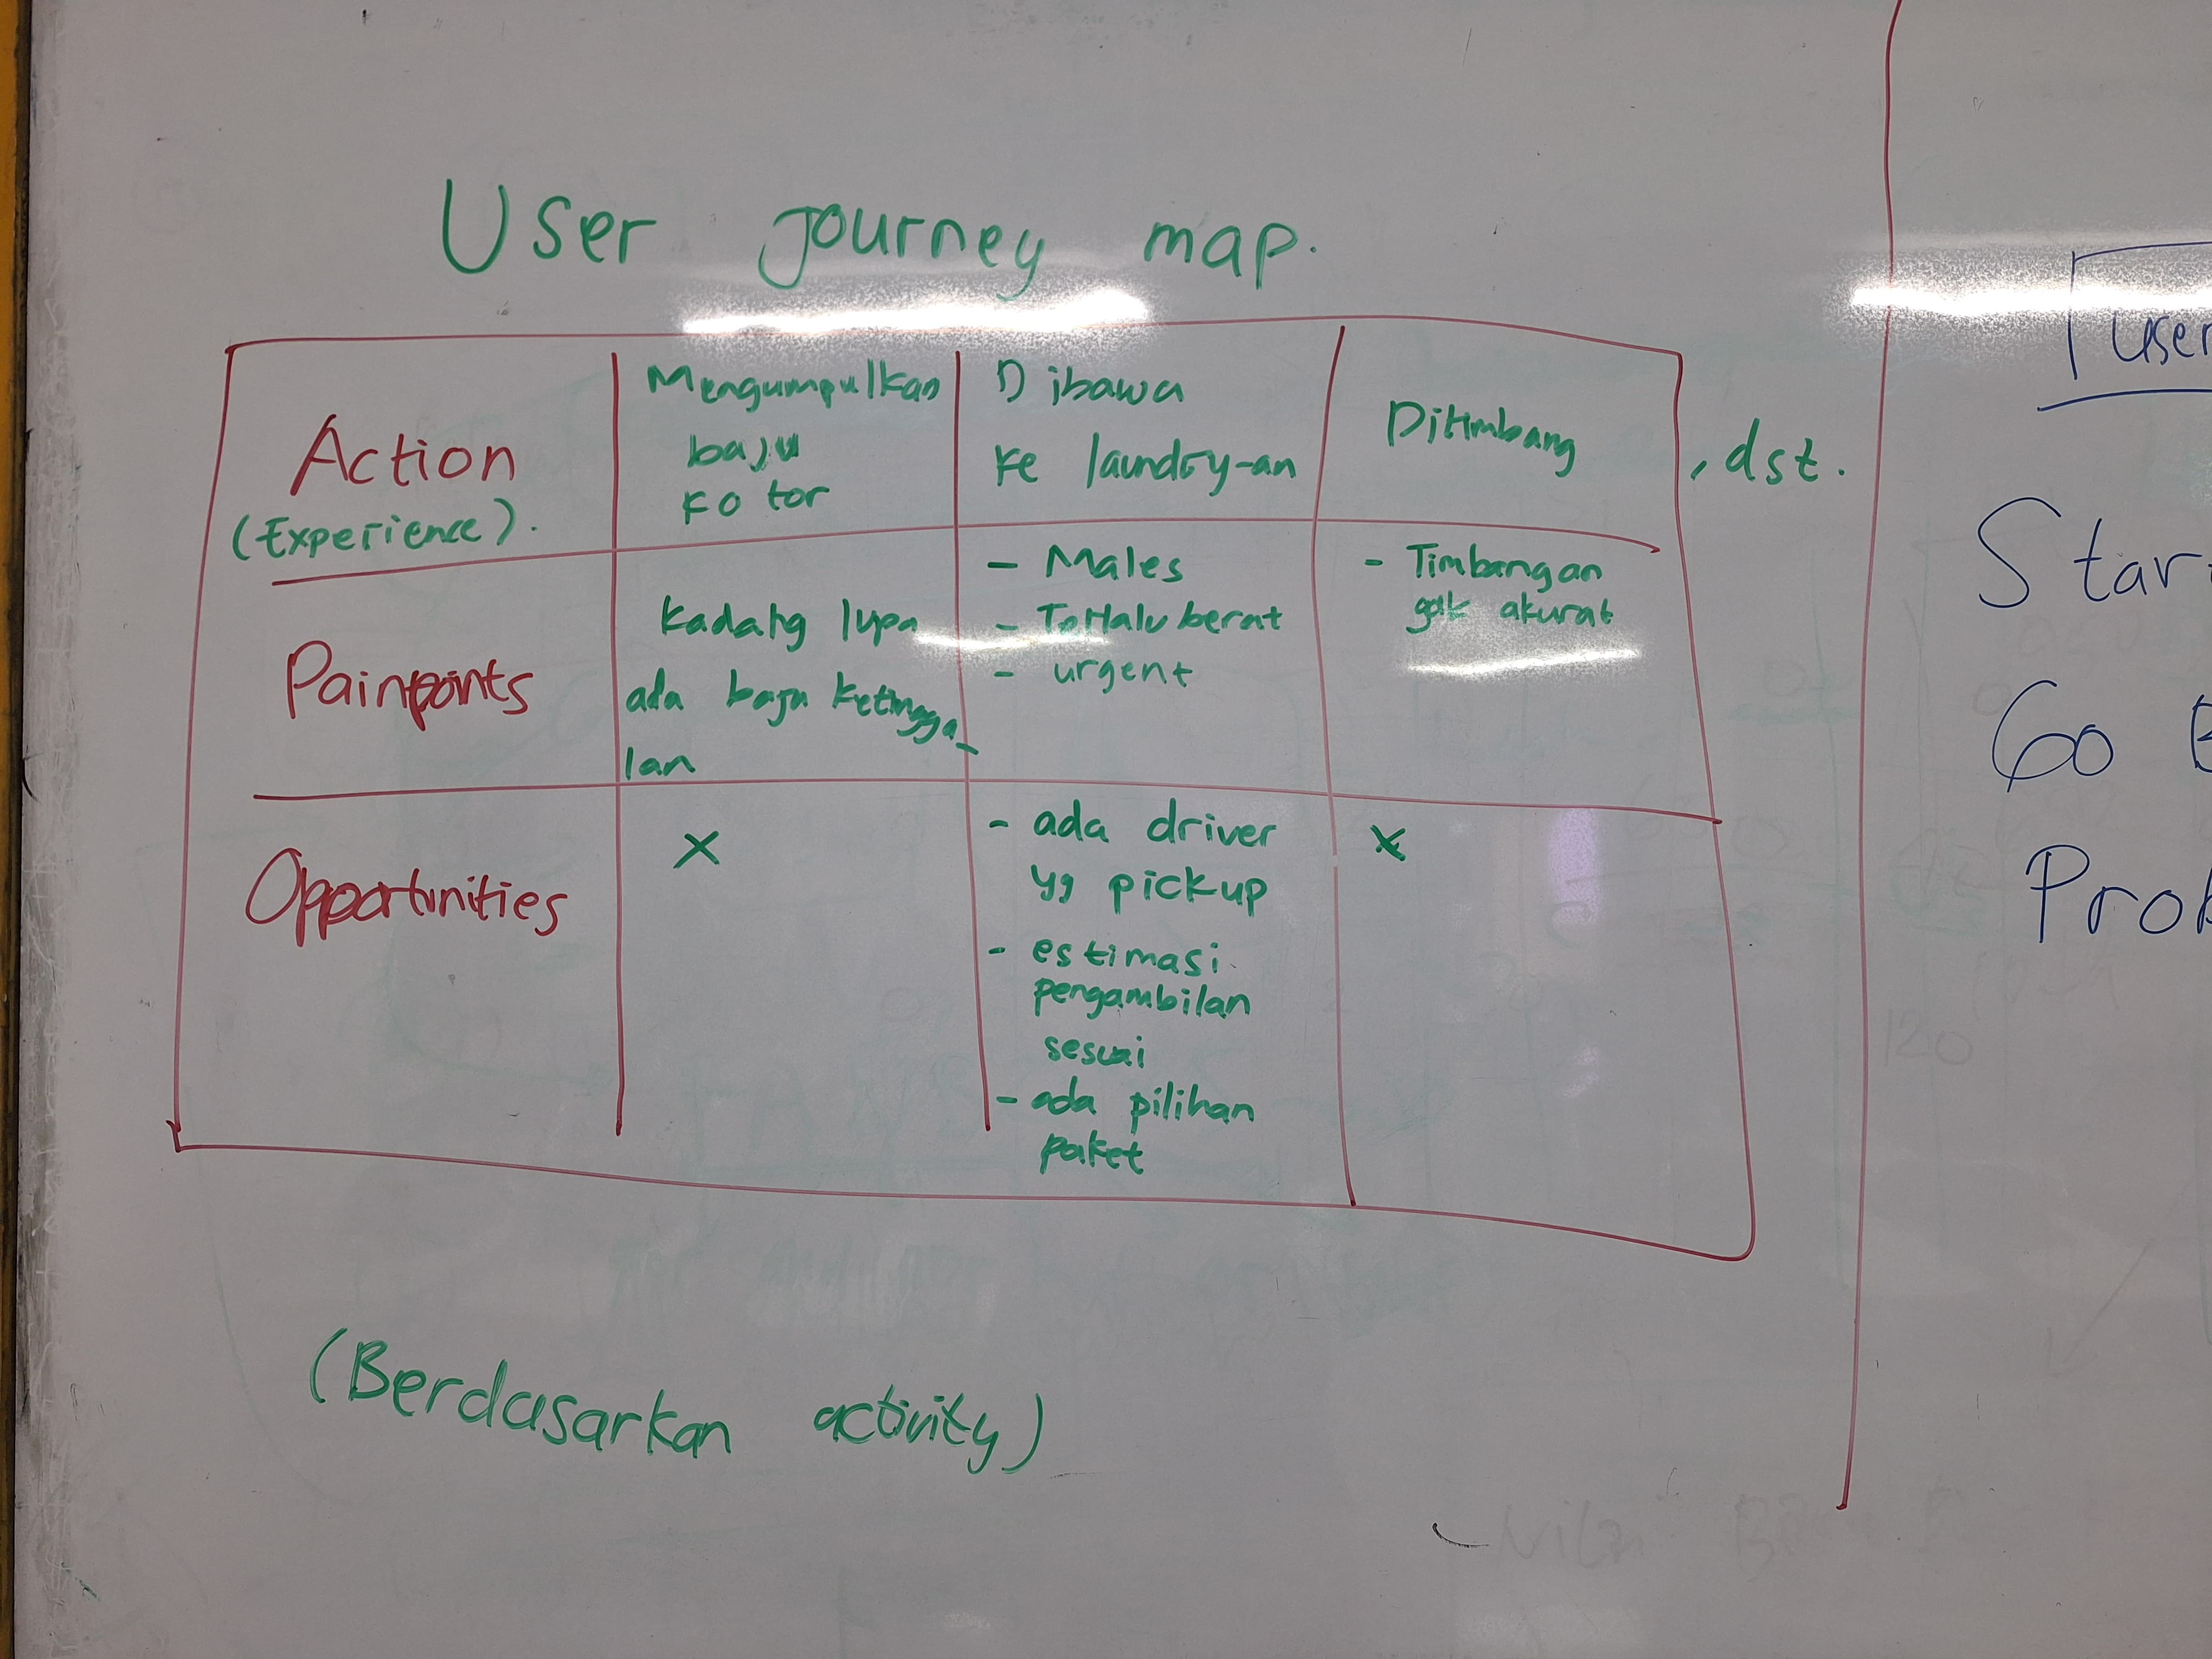 User journey map.
Action
(Experience).
Mengumpulkan
baju
kotor
Dibawa
ke laundry-an
Ditimbang
, dst.
Painpoints
Kadang lupa
ada baju ketingga-
lan
- Males
- Terlalu berat
- urgent
- Timbangan
gak akurat
Opportunities
X
- ada driver
yg pickup
- estimasi
pengambilan
sesuai
- ada pilihan
paket
X
(Berdasarkan activity)
User
Go